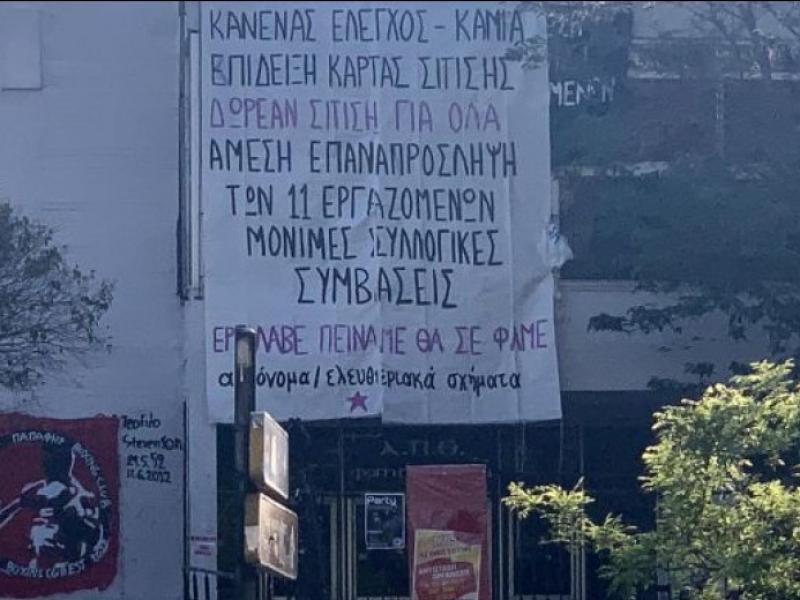 ΚΑΝΕΝΑΣ ΕΛΕΓΧΟΣ - ΚΑΜΙΑ
ΕΠΙΔΕΙΞΗ ΚΑΡΤΑΣ ΣΙΤΙΣΗΣ
ΔΩΡΕΑΝ ΣΙΤΙΣΗ ΓΙΑ ΟΛΑ
ΑΜΕΣΗ ΕΠΑΝΑΠΡΟΣΛΗΨΗ
ΤΩΝ 11 ΕΡΓΑΖΟΜΕΝΩΝ
ΜΟΝΙΜΕΣ ΣΥΛΛΟΓΙΚΕΣ
ΣΥΜΒΑΣΕΙΣ
ΠΕΙΝΑΜΕ ΘΑ ΣΕ ΦΑΜΕ
αυτόνομα/ελευθεριακά σχήματα
ΜΕΝΩΝ
Teofilo
Stevenson
29.5.52
11.6.2012
ΠΑΠΑΦΗ BOXING CLUB
Α.Π.Θ.
Party